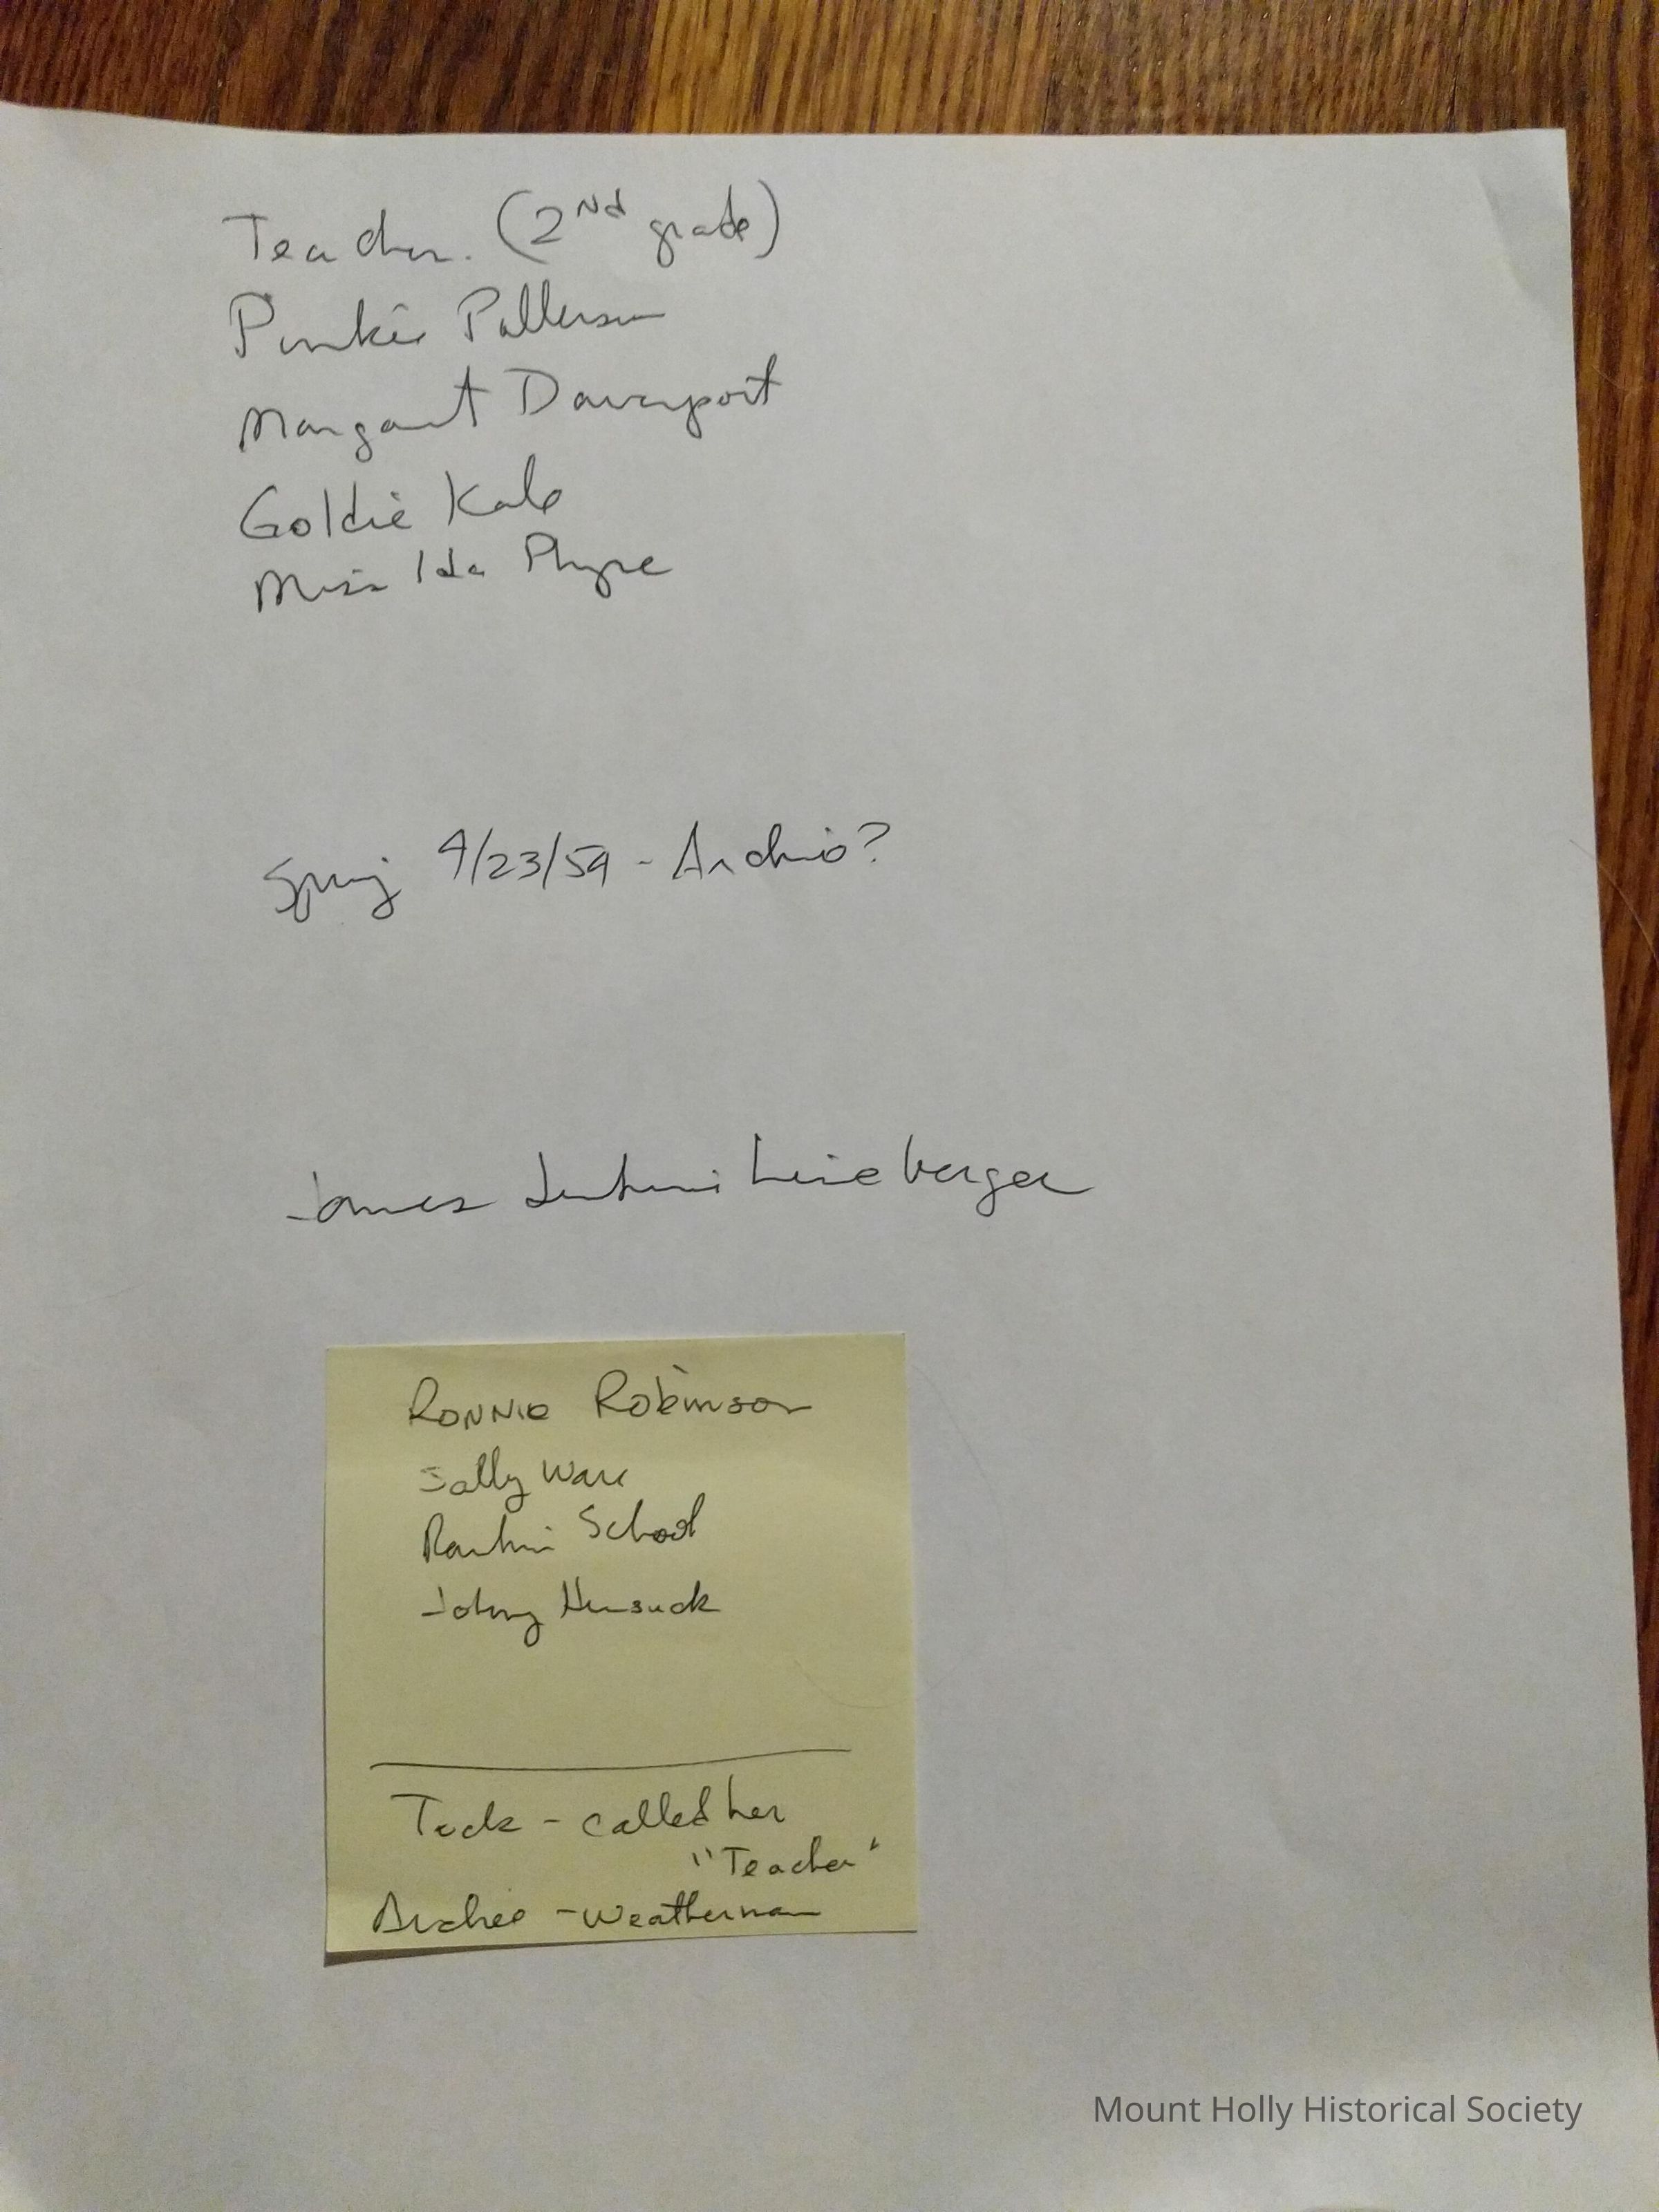 Teacher. (2nd grade)
Punkie Patterson
Margaret Davenport
Goldie Kale
Miss Ida
Spring 4/23/59 - Archie?
James Lineberger
Ronnie Robinson
Sally Ware
Rankin School
Johny
- called her
"Teacher"
Archie - weatherman
Mount Holly Historical Society